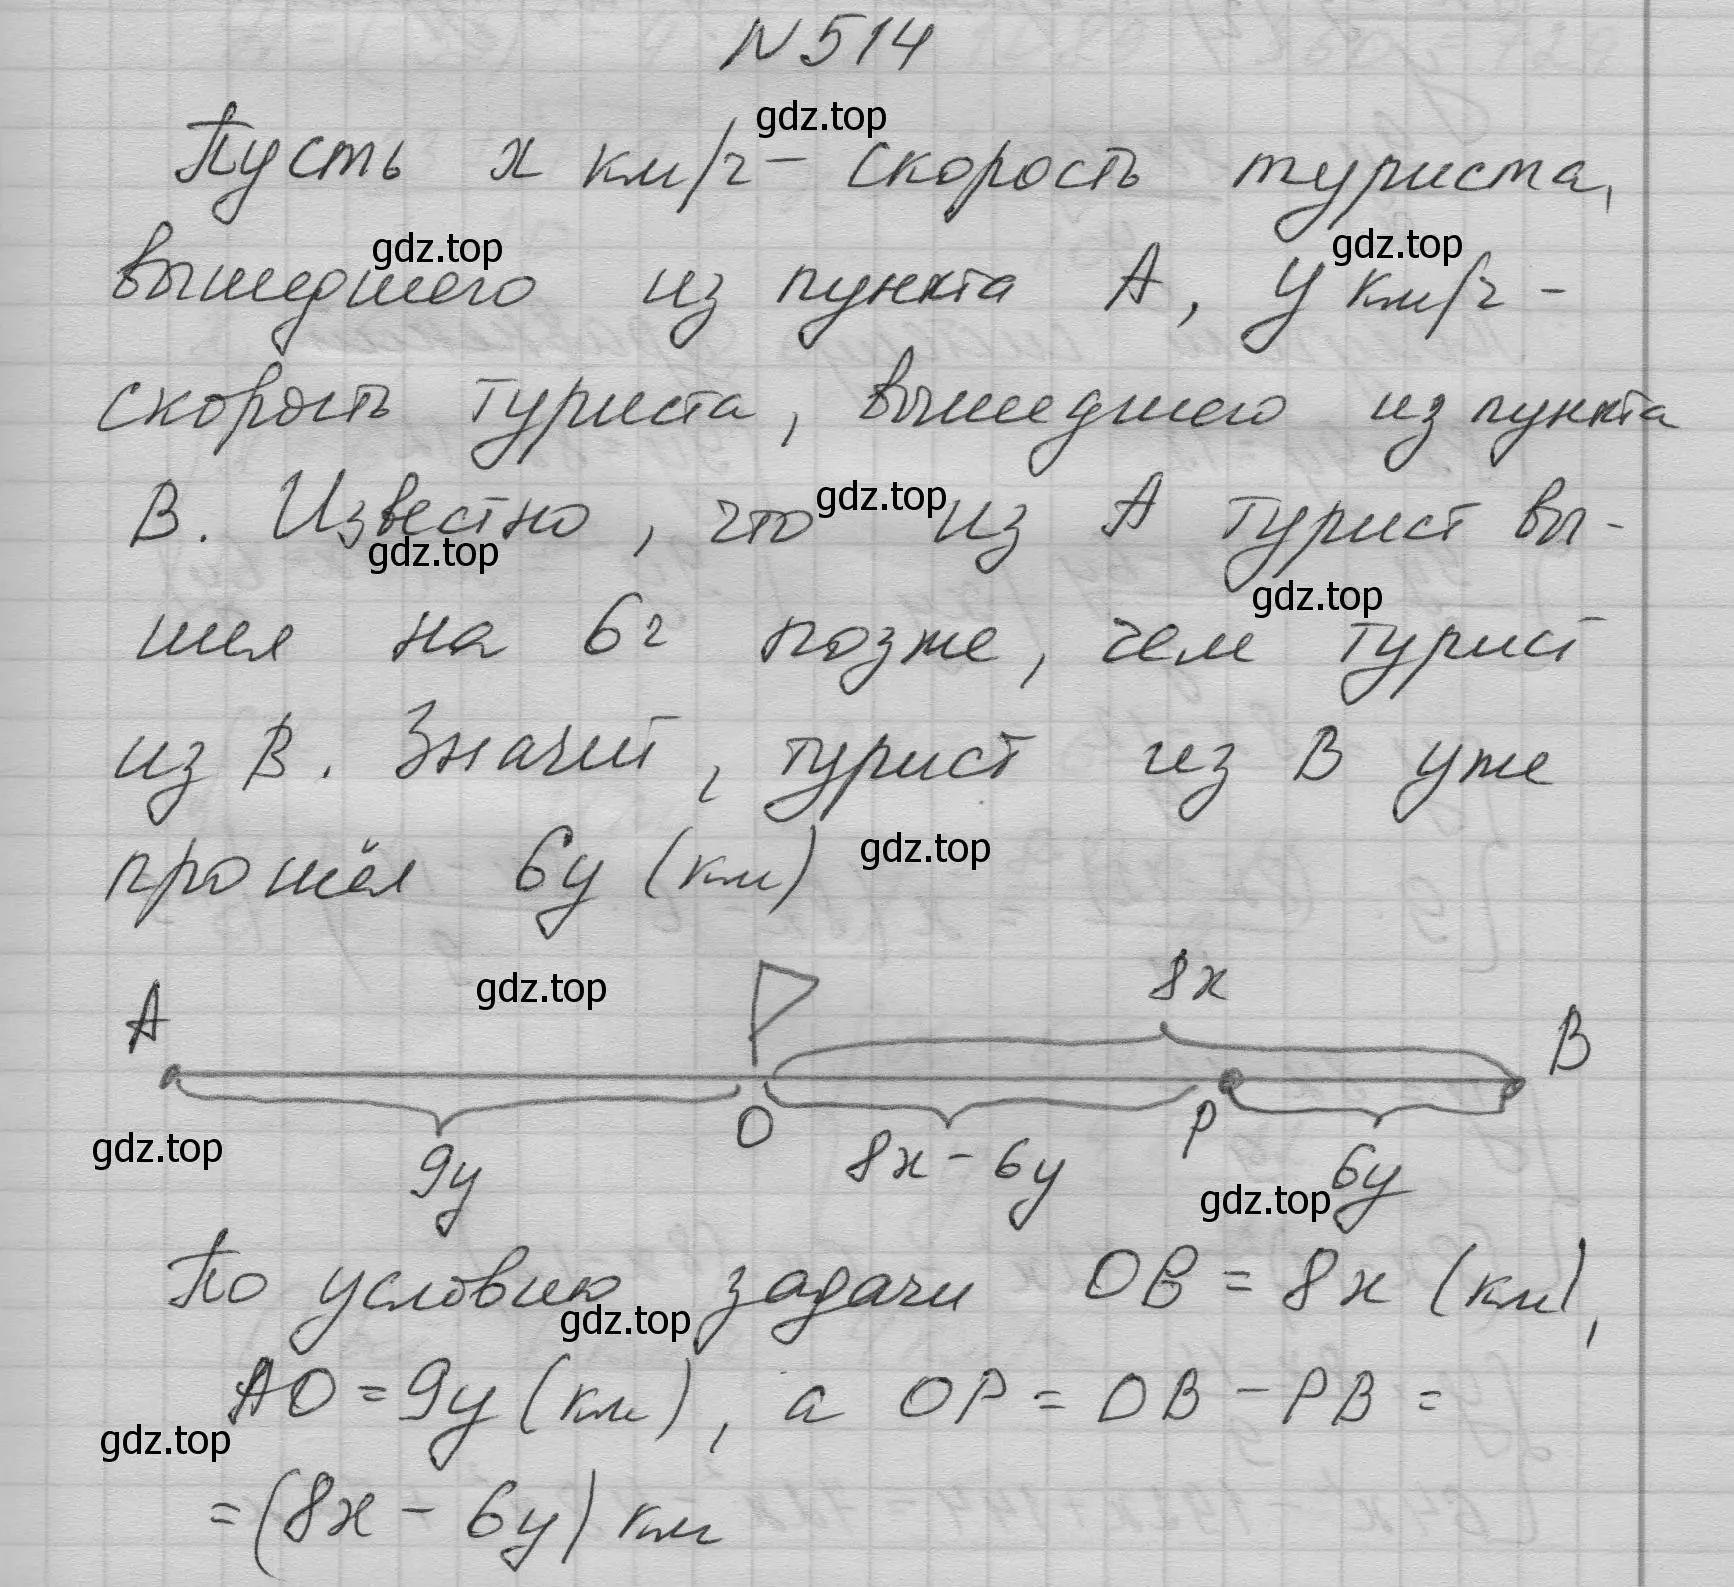 N 514
gdz.top
Пусть x км/ч - скорость туриста,
gdz.top
gdz.top
вышедшего из пункта A, y км/ч -
скорость туриста, вышедшего из пункта
gdz.top
B. Известно, что из A турист вы-
gdz.top
gdz.top
шел на 6ч позже, чем турист
из B. Значит, турист из B уже
gdz.top
прошёл 6y (км)
gdz.top
8x
A
B
O
P
gdz.top
9y
8x - 6y
6y
gdz.top
По условию задачи OB = 8x (км),
gdz.top
AO = 9y (км), а OP = OB - PB =
gdz.top
= (8x - 6y) км